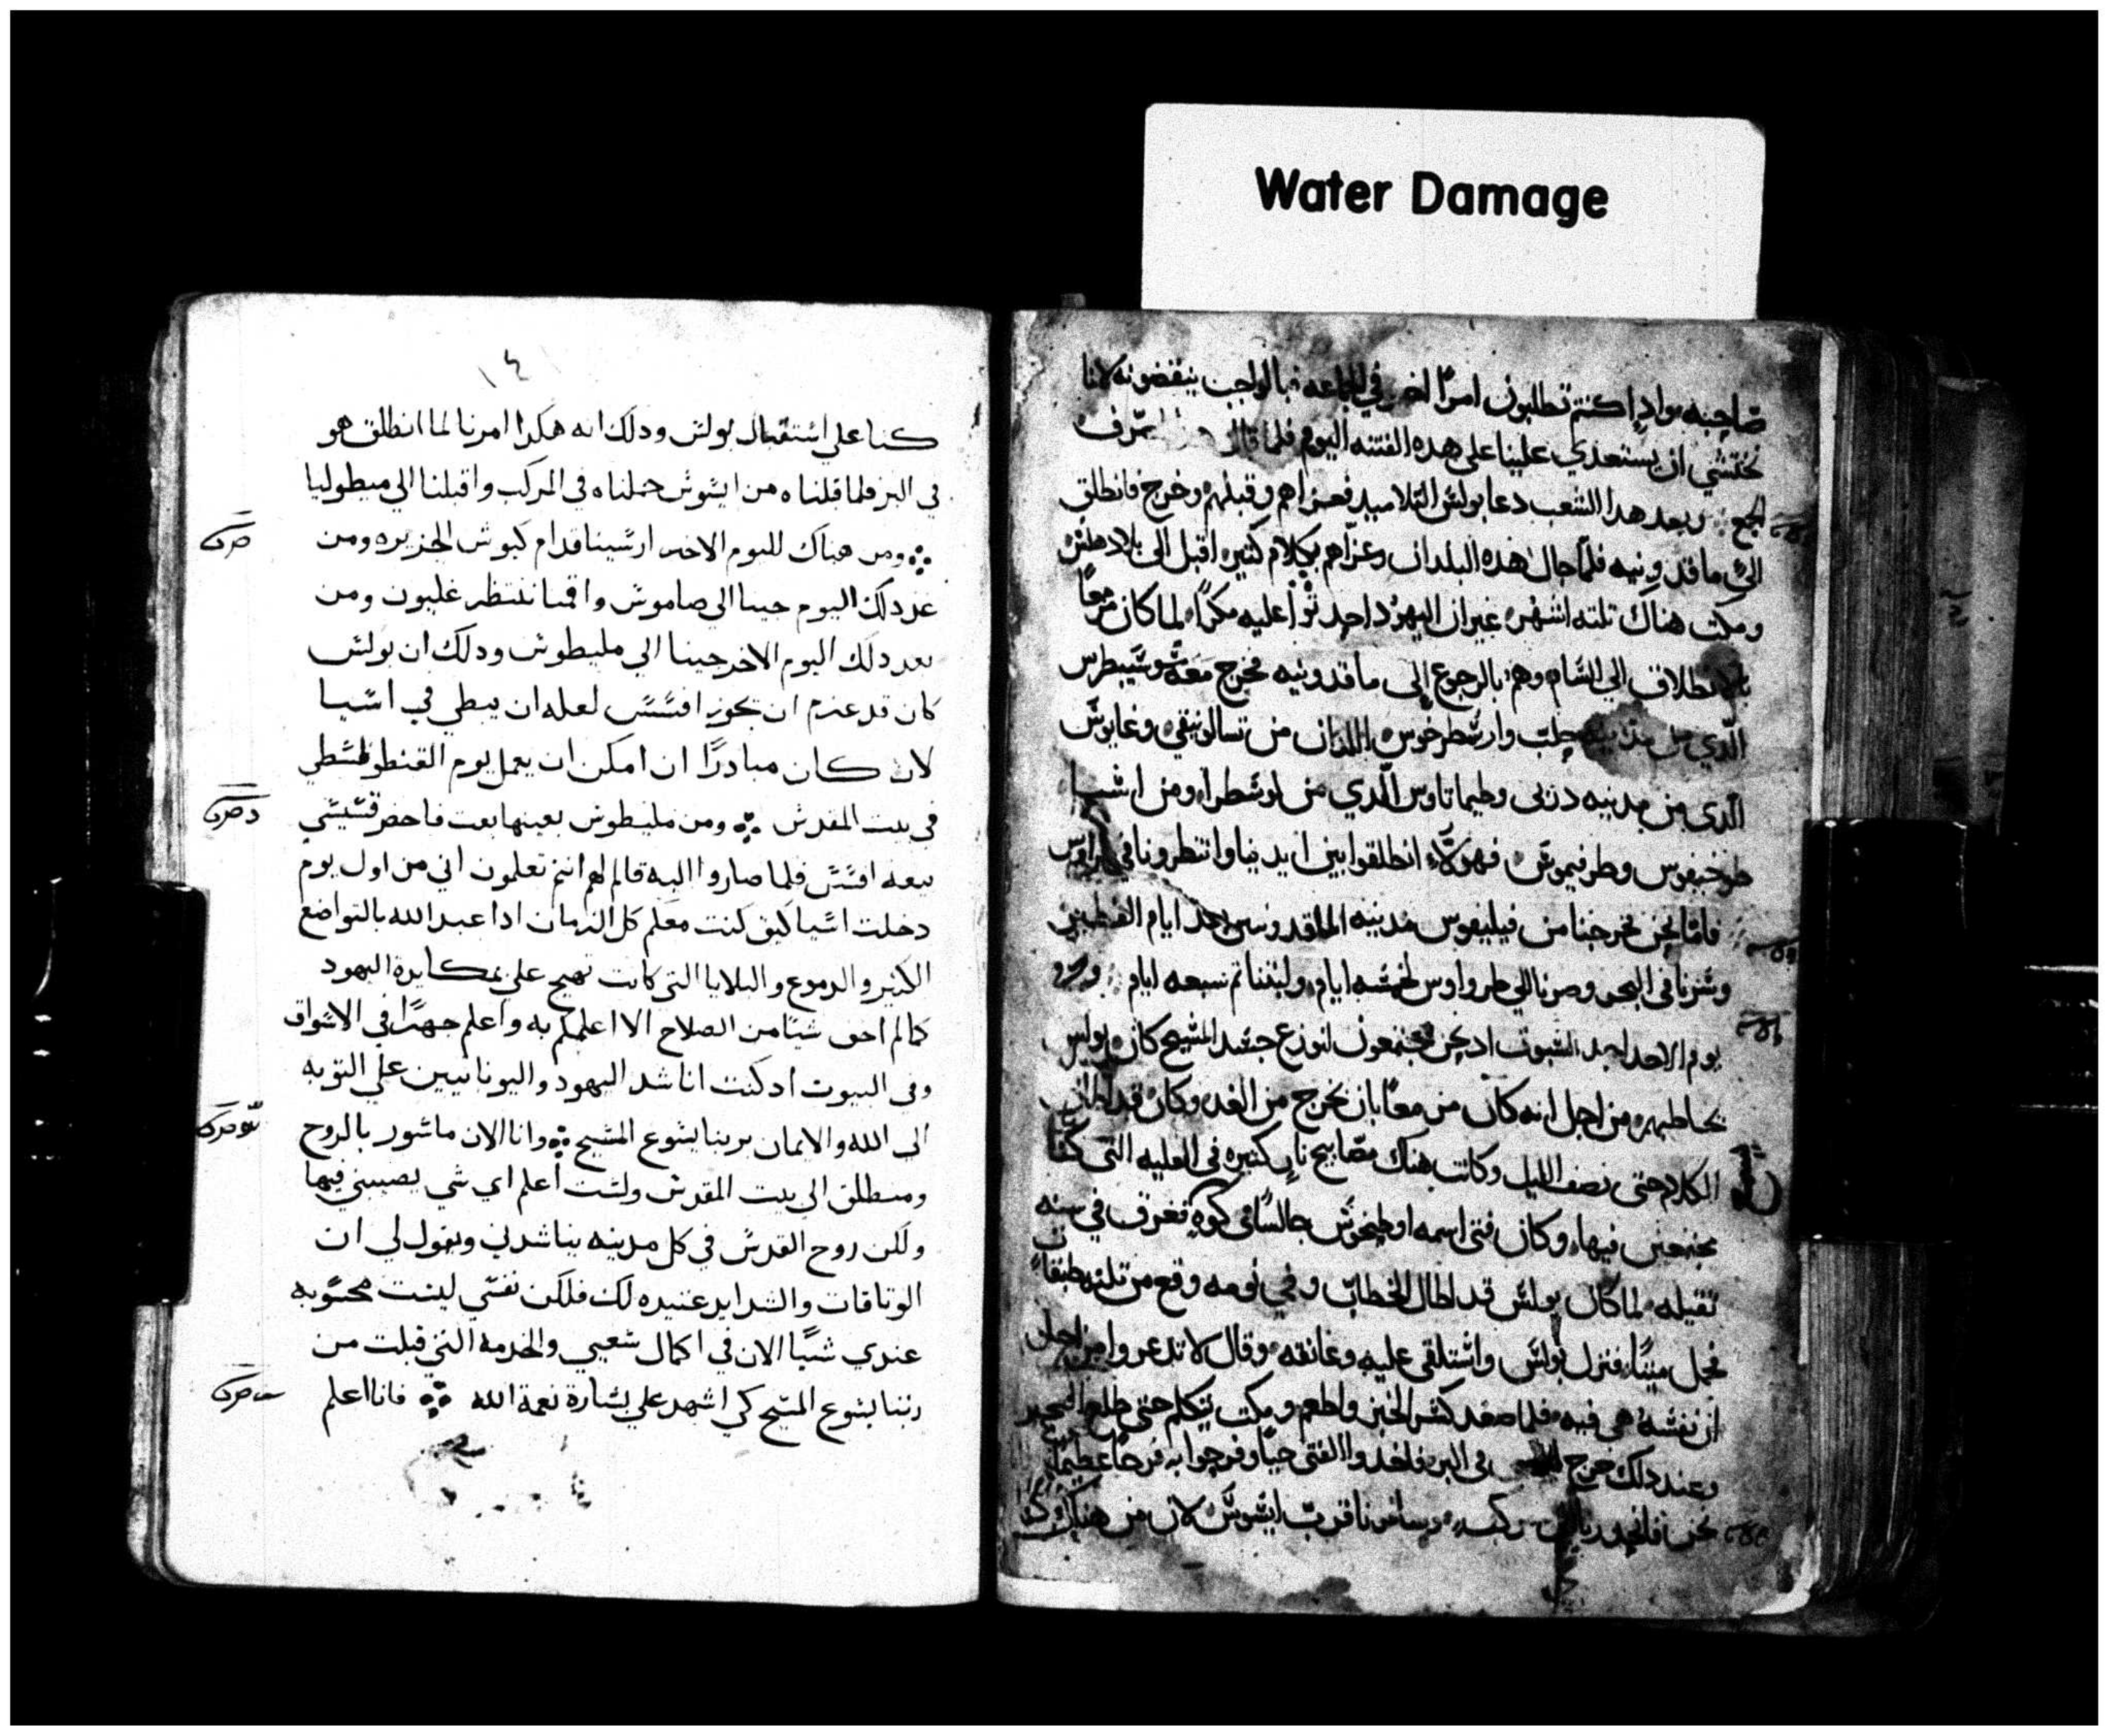 Water Damage
صاحبه واذا كنتم تطلبون امرًا اخر في الجماعه فبالواجب ينقضونه لاننا
نختشي ان يستعدي علينا على هده الفتنه اليوم فلما قال صرف
الجمع وبعد هدا الشعب دعا بولش التلاميد فعزاهم وقبلهم وخرج فانطلق
الى ماقدونيه فلما جال هده البلدان وعزاهم بكلام كتير اقبل الى بلاد
ومكت هناك تلته اشهر غير ان اليهود عليه مكرًا لما كان مزمعًا
بالانطلاق الي الشام وهم بالرجوع إلى ماقدونيه فخرج معه شوشيبطرس
الدي من حلب وارشطرخوس اللدان من تسالونيقي وغايوش
الدي من مدينه دربى وطيماتاوس الدي من لوشطرا ومن اشيا
طوخيقوس وطرفيموش فهولاء انطلقوا بين ايدينا وانتظرونا في
فاما نحن فخرجنا من فيليفوس مدينه ايام الفطير
وشرنا في البحر وصرنا الي طرواوس لخمشه ايام ولبتنا تم شبعه ايام
يوم الاحد احد الشبوت اد نحن مجتمعون لنوزع جشد المشيح كان بولس
يخاطبهم من اجل انه كان مزمعًا بان يخرج من الغد وكان قد اطال
الكلام حتى نصف الليل وكانت هناك مصابيح نار كتيره في العليه التي كنا
مجتمعين فيها وكان فتى اسمه اوطيخوش جالسًا في كوه فغرق في سنه
تقيله لما كان بولش قد اطال الخطاب وفي نومه وقع من تلته طبقات
فحمل ميتًا فنزل بولش واشتلقى عليه وعانقه وقال لا تدعروا من اجل
ان نفشه هي فيه فلما صعد كشر الخبز واطعم ومكت يتكلم حتى طلع الفجر
وعند دلك خرج في البر فاخدوا الفتى حيًا وفرحوا به فرحًا عظيمًا
نحن فانحدرنا وسافرنا قرب ايشوش لان من هناك
١٤١
كنا على اشتقبال بولش ودلك انه هكدا امرنا لما انطلق هو
في البر فلما قبلناه من ايشوش حملناه في المركب واقبلنا الي ميطوليا
ومن هناك لليوم الاخر ارشينا قدام كيوش الجزيره ومن
غد دلك اليوم جينا الي صاموش واقمنا ننتظر غليون ومن
بعد دلك اليوم الاخر جينا الي مليطوش ودلك ان بولش
كان قد عزم ان يجوز افشش لعله ان يبطي في اشيا
لان كان مبادرًا ان امكن ان يعمل يوم القنطوقشطي
في بيت المقدش ومن مليطوش بعينها بعت فاحضر قشيشي
بيعه افشش فلما صاروا اليه قال لهم انتم تعلمون اني من اول يوم
دخلت اشيا كيف كنت معكم كل الزمان ادا عبد الله بالتواضع
الكتير والدموع والبلايا التي كانت تهيج علي بمكايرة اليهود
كما لم اخف شيًا من الصلاح الا اعلمكم به واعلم جهرًا في الاشواق
وفي البيوت اد كنت اناشد اليهود واليونانيين علي التوبه
الى الله والايمان بربنا يشوع المشيح وانا الان ماشور بالروح
ومنطلق الى بيت المقدش ولشت أعلم اي شي يصيبني فيها
ولكن روح القدش في كل مدينه يناشدني ويقول لي ان
الوتاقات والشدايد عتيده لك فلكن نفشي ليشت محشوبه
عندي شيًا الان في اكمال شعيي والخدمه التي قبلت من
ربنا يشوع المشيح كي اشهد علي بشارة نعمة الله فانا اعلم